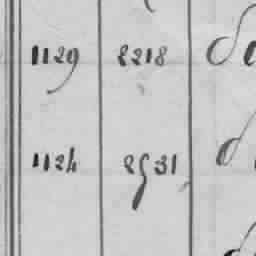 1129 2218
1124 2531